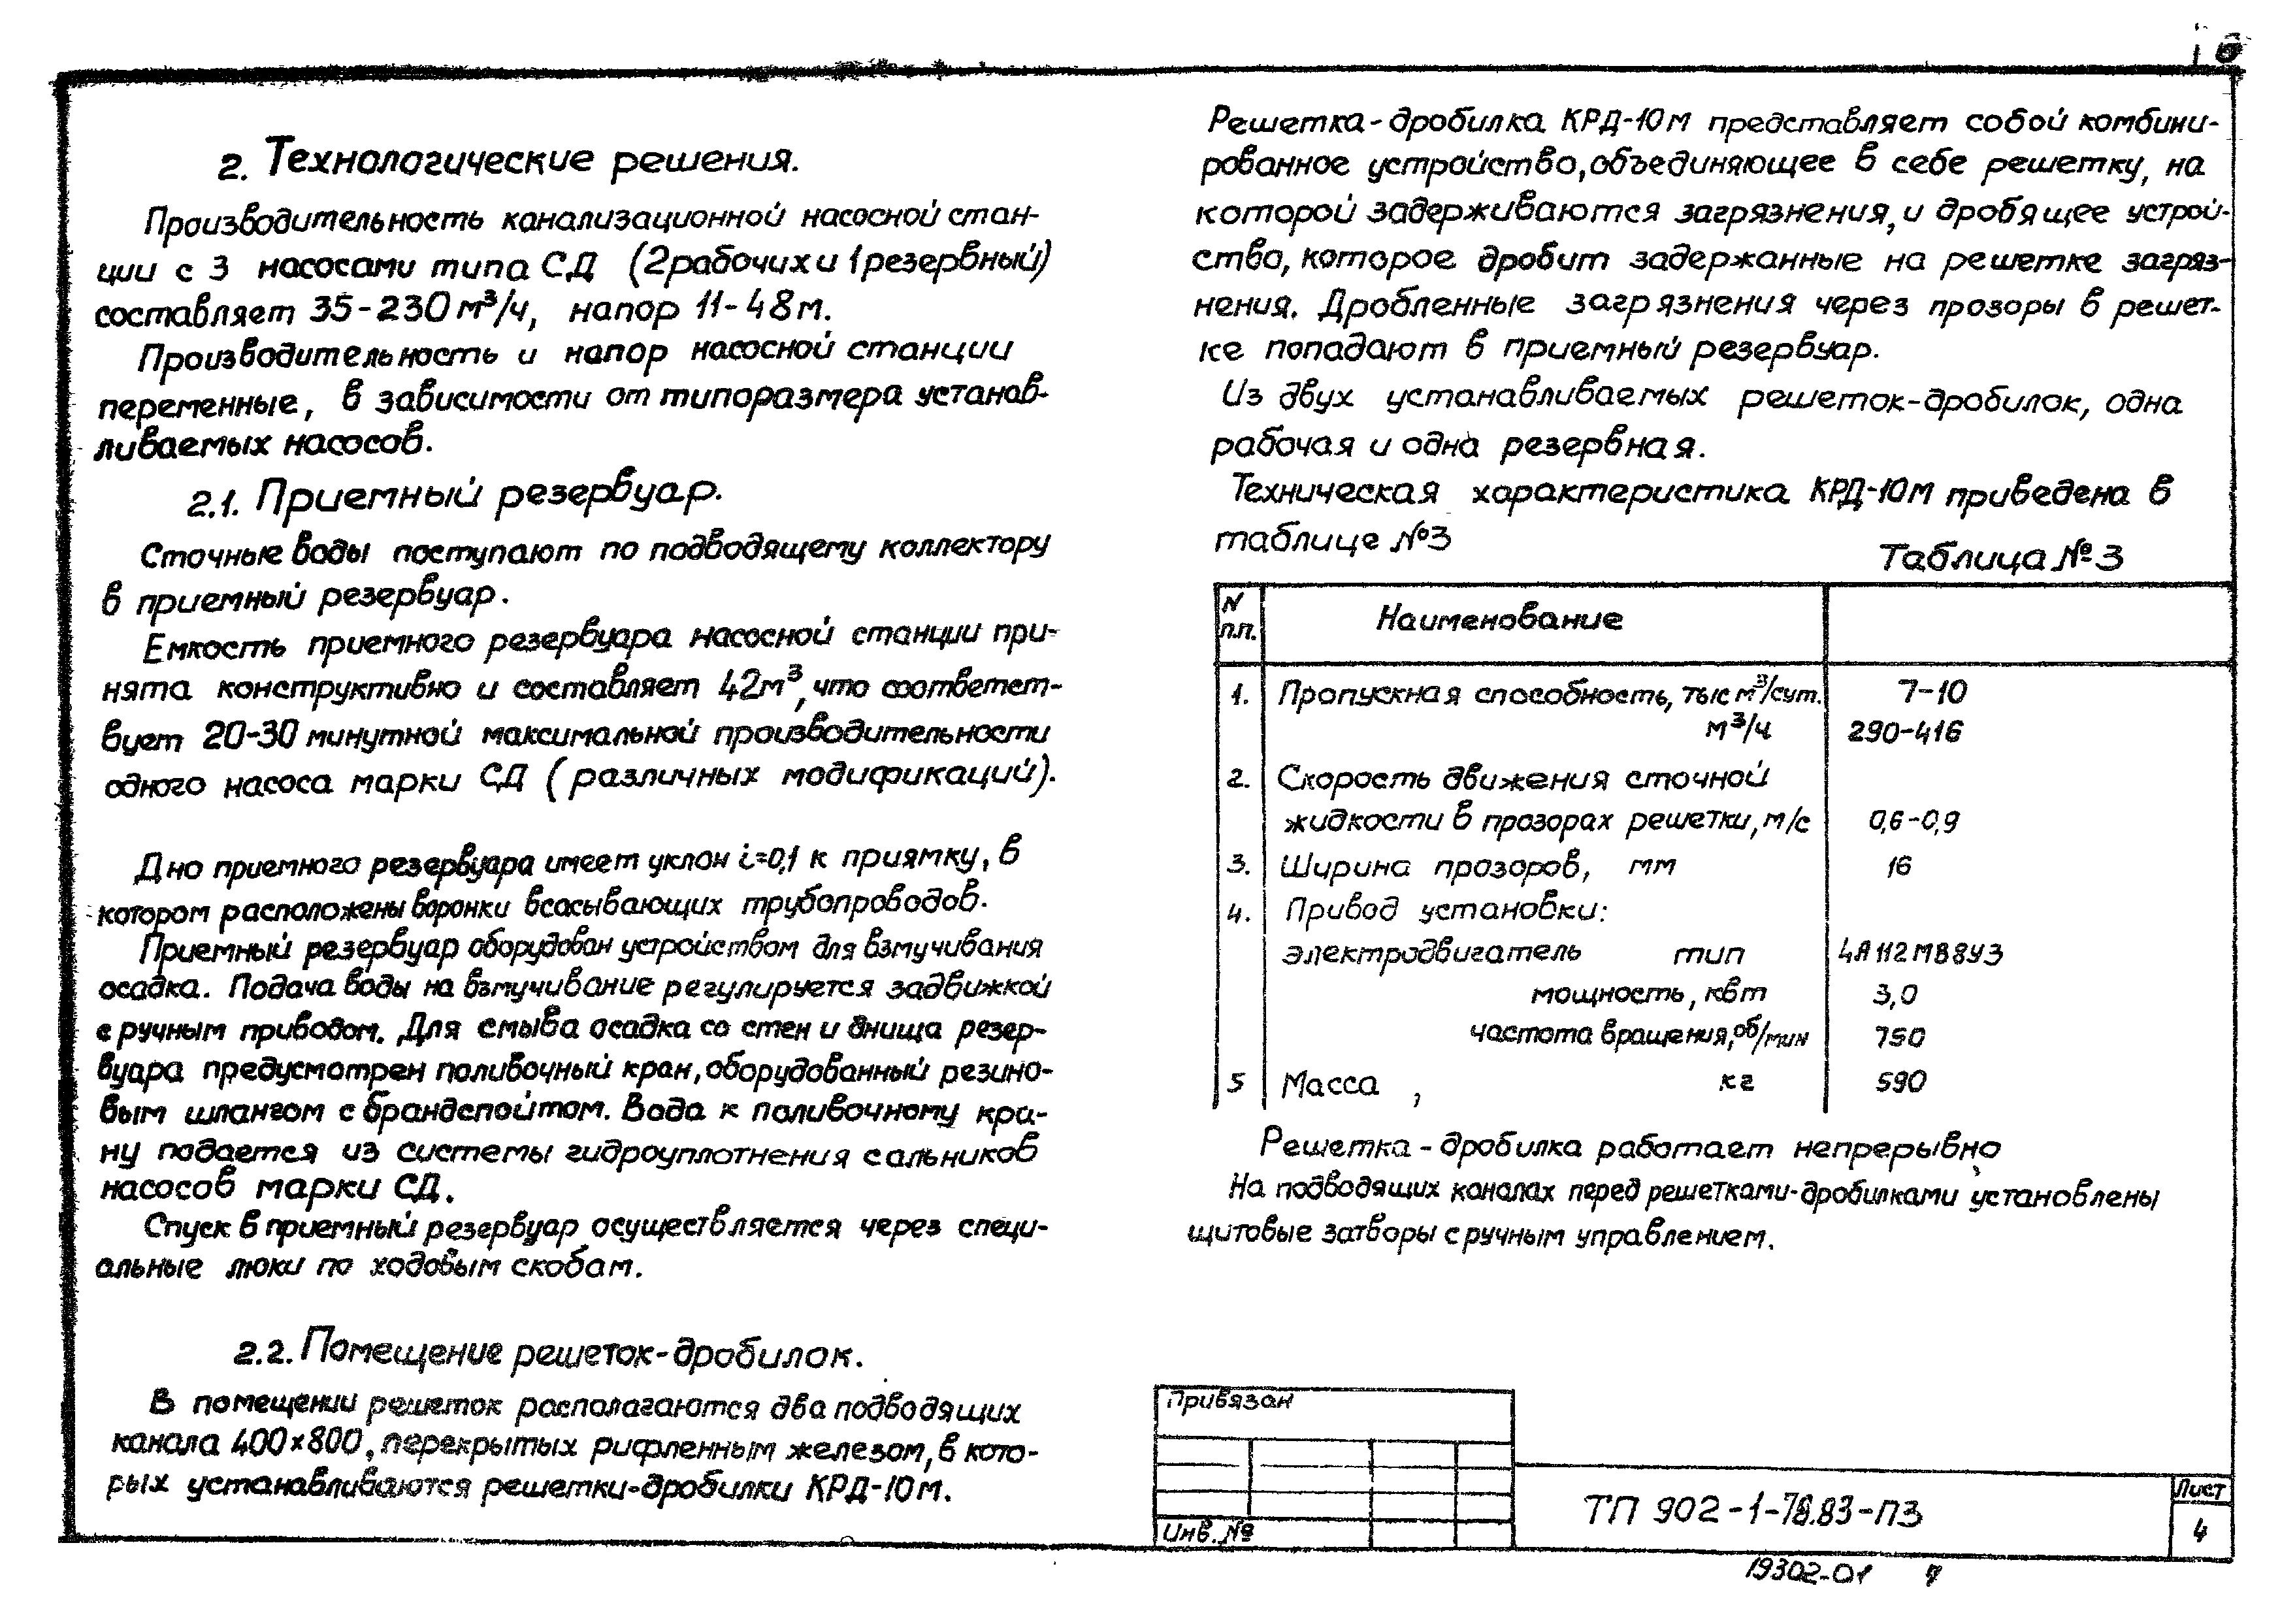 2. Технологические решения.
Производительность канализационной насосной стан-
ции с 3 насосами типа СД (2 рабочих и 1 резервный)
составляет 35-230 м³/ч, напор 11-48 м.
Производительность и напор насосной станции
переменные, в зависимости от типоразмера установ-
ливаемых насосов.
2.1. Приемный резервуар.
Сточные воды поступают по подводящему коллектору
в приемный резервуар.
Емкость приемного резервуара насосной станции при-
нята конструктивно и составляет 42м³, что соответст-
вует 20-30 минутной максимальной производительности
одного насоса марки СД (различных модификаций).
Дно приемного резервуара имеет уклон i=0,1 к приямку, в
котором расположены воронки всасывающих трубопроводов.
Приемный резервуар оборудован устройством для взмучивания
осадка. Подача воды на взмучивание регулируется задвижкой
с ручным приводом. Для смыва осадка со стен и днища резер-
вуара предусмотрен поливочный кран, оборудованный резино-
вым шлангом с брандспойтом. Вода к поливочному кра-
ну подается из системы гидроуплотнения сальников
насосов марки СД.
Спуск в приемный резервуар осуществляется через специ-
альные люки по ходовым скобам.
2.2. Помещение решеток-дробилок.
В помещении решеток располагаются два подводящих
канала 400×800, перекрытых рифленным железом, в кото-
рых устанавливаются решетки-дробилки КРД-10м.
Решетка-дробилка КРД-10м представляет собой комбини-
рованное устройство, объединяющее в себе решетку, на
которой задерживаются загрязнения, и дробящее устрой-
ство, которое дробит задержанные на решетке загряз-
нения. Дробленные загрязнения через прозоры в решет-
ке попадают в приемный резервуар.
Из двух устанавливаемых решеток-дробилок, одна
рабочая и одна резервная.
Техническая характеристика КРД-10м приведена в
таблице №3
Таблица №3
N п.п. Наименование
1. Пропускная способность, тыс м³/сут. 7-10
м³/ч 290-416
2. Скорость движения сточной
жидкости в прозорах решетки, м/с 0,6-0,9
3. Ширина прозоров, мм 16
4. Привод установки:
электродвигатель тип 4А112МВ8У3
мощность, квт 3,0
частота вращения, об/мин 750
5 Масса , кг 590
Решетка-дробилка работает непрерывно
На подводящих каналах перед решетками-дробилками установлены
щитовые затворы с ручным управлением.
Привязан
Инв. №
ТП 902-1-78.83-ПЗ
Лист
4
19302-01 7